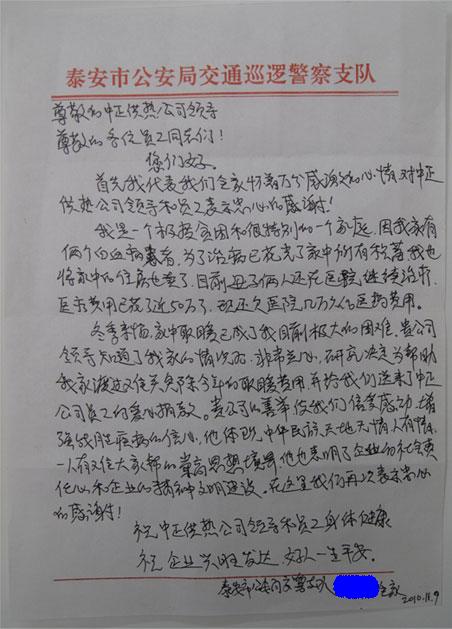 泰安市公安局交通巡逻警察支队
尊敬的中正供热公司领导
尊敬的各位员工同志们！
您们好。
首先我代表我们全家怀着万分感激的心情对中正
供热公司领导和员工表示忠心的感谢！
我是一个极贫困和很特别的一个家庭，因我家有
俩个白血病患者，为了治病已花光了家中所有积蓄，我也
将家中的住房也卖了，目前母子俩人还在医院继续治疗，
医疗费用已花了近50万了，现还欠医院几万久的医药费用。
冬季来临，家中取暖已成了我目前极大的困难，贵公司
领导知道了我家的情况后，非常关心，研究决定为帮助
我家渡过难关免除今年的取暖费用，并给我们送来了中正
公司员工的爱心捐款。贵公司的善举使我们倍受感动，增
强战胜疾病的信心，他体现中华民族天地无情人有情，
一人有难大家帮的崇高思想境界，他也表明了企业的社会责
任心和企业的精神文明建设，在这里我们再次表示忠心
的感谢！
祝中正供热公司领导和员工身体健康
祝企业兴旺发达 好人一生平安。
泰安市公安局交警支队 全家
2010.11.9